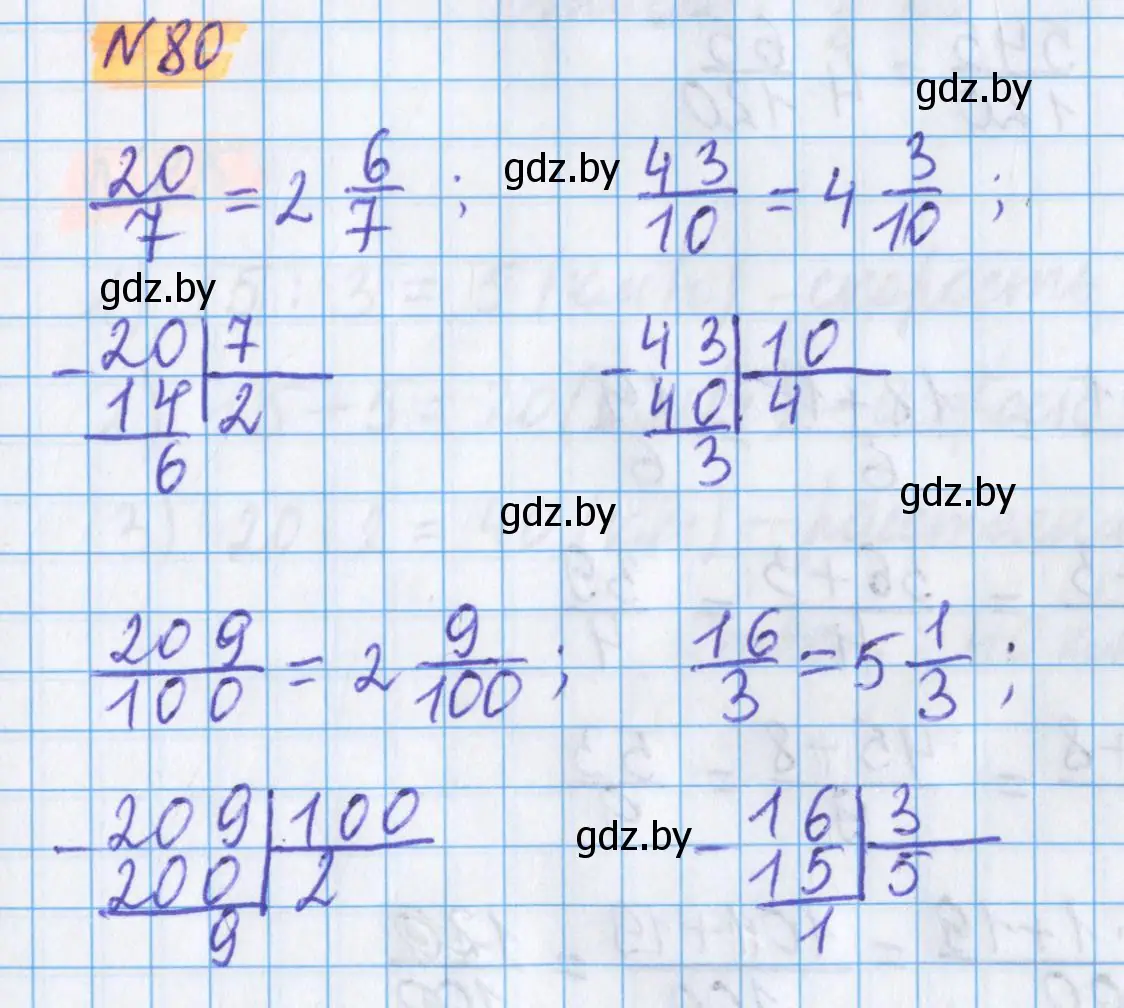 N 80
gdz.by
20/7 = 2 6/7 ; gdz.by 43/10 = 4 3/10 ;
gdz.by
- 20 | 7 - 43 | 10
14 | 2 40 | 4
6 3
gdz.by gdz.by
209/100 = 2 9/100 ; 16/3 = 5 1/3 ;
- 209 | 100 gdz.by - 16 | 3
200 | 2 15 | 5
9 1